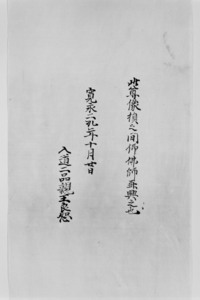 此尊像損之間仰佛師再興之也
寛永二十年十月廿日
入道二品親王良恕